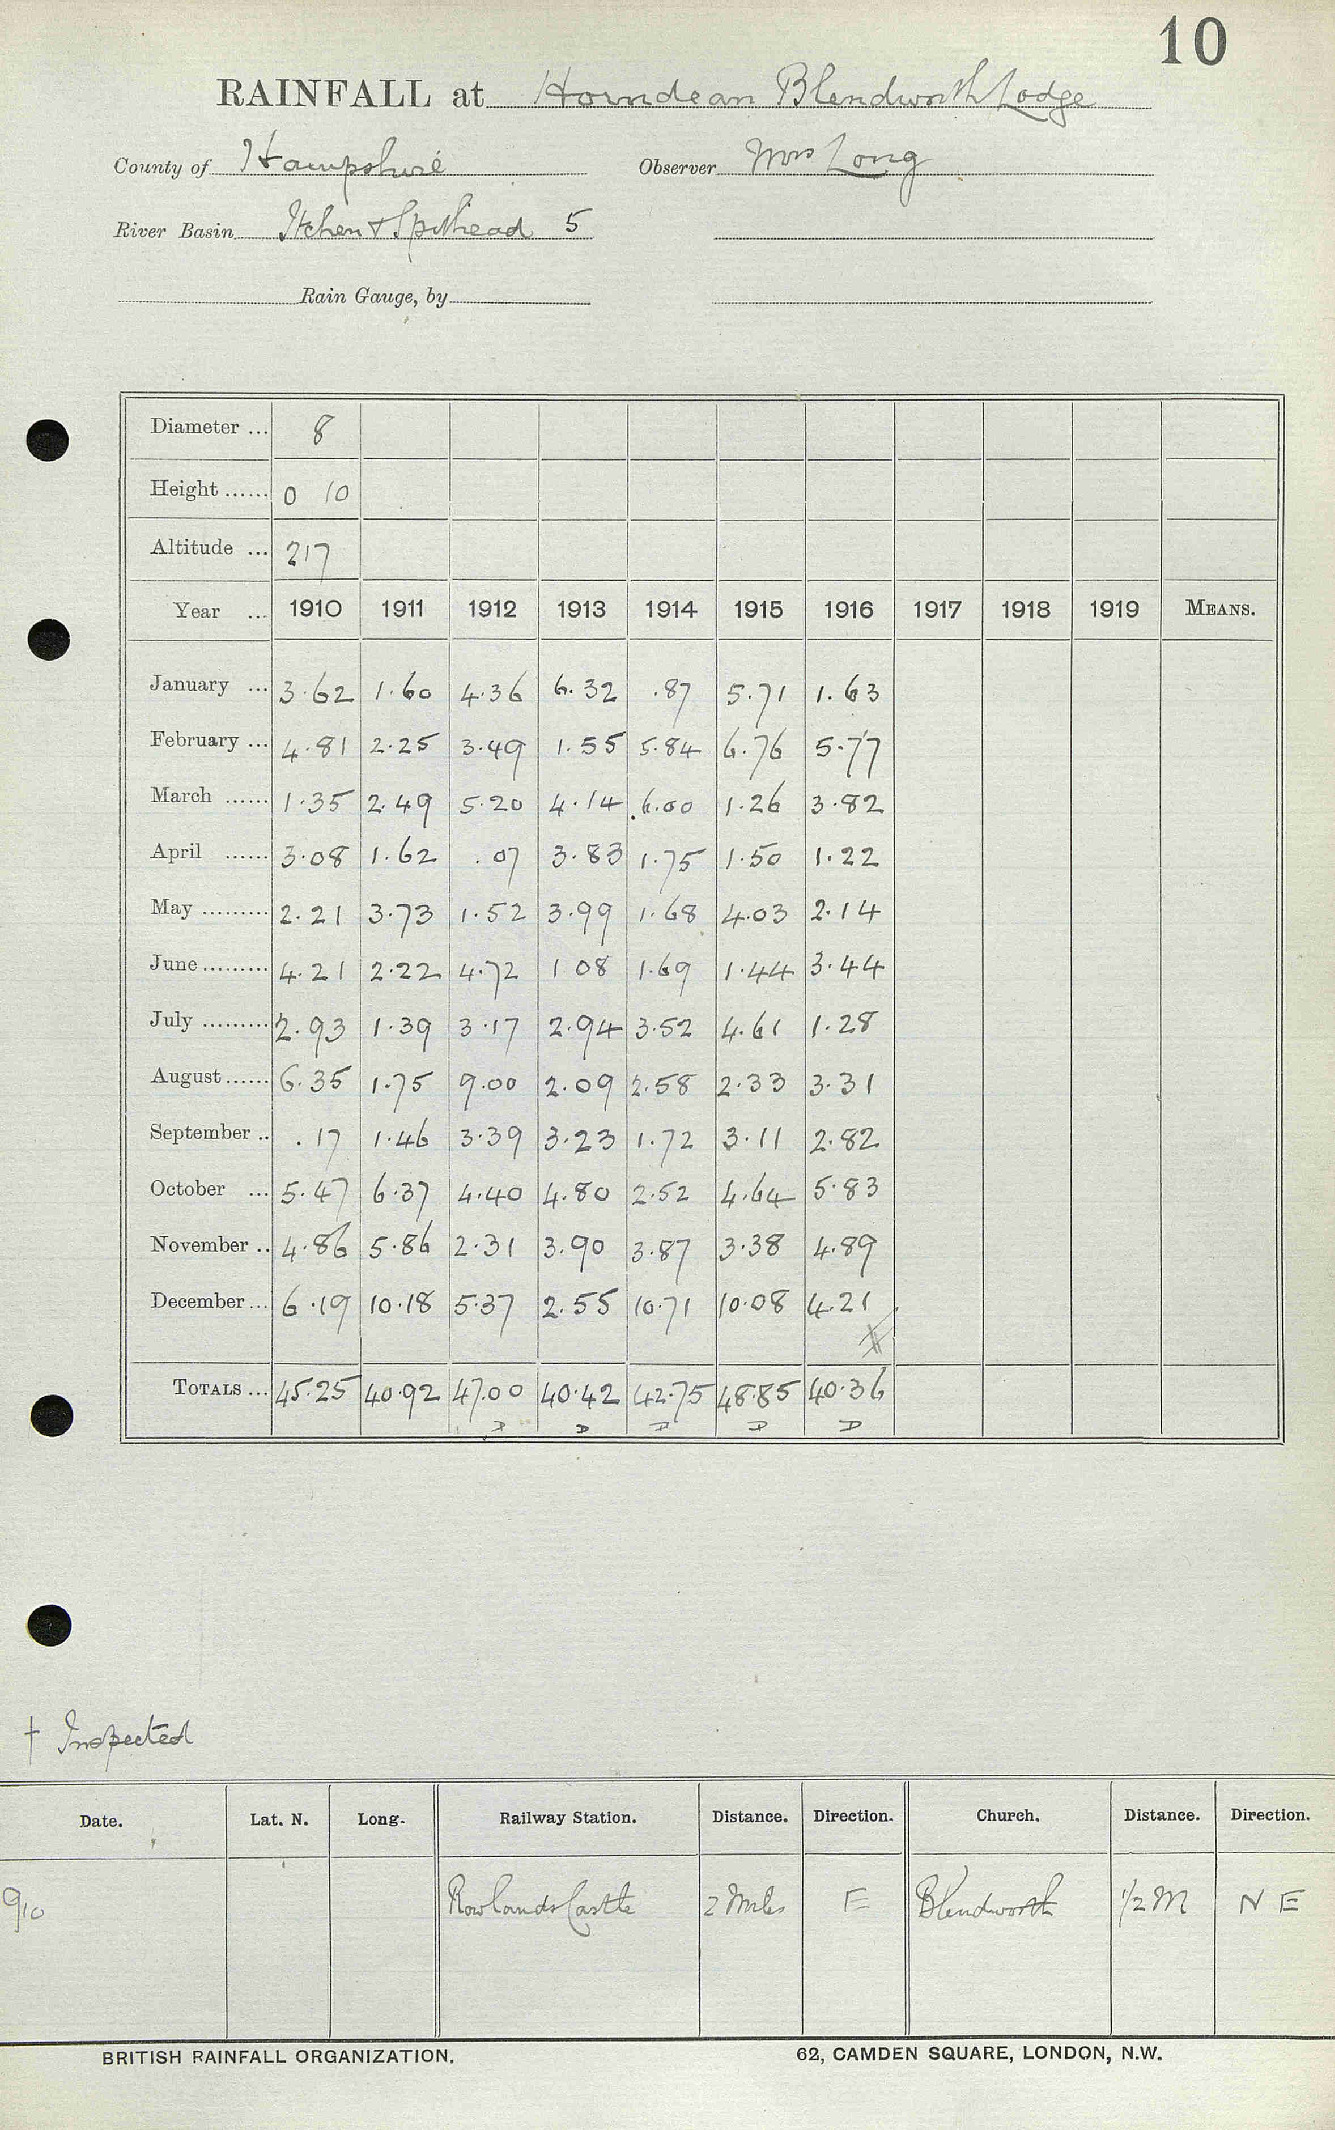 10
RAINFALL at Horndean Blendworth Lodge
County of Hampshire Observer Mrs Long
River Basin Itchen & Spithead 5
Rain Gauge, by
Diameter ... 8
Height ...... 0 10
Altitude ... 217
Year ... 1910 1911 1912 1913 1914 1915 1916 1917 1918 1919 MEANS.
January ... 3.62 1.60 4.36 6.32 .87 5.71 1.63
February ... 4.81 2.25 3.49 1.55 5.84 6.76 5.77
March ...... 1.35 2.49 5.20 4.14 6.00 1.26 3.82
April ...... 3.08 1.62 .07 3.83 1.75 1.50 1.22
May ......... 2.21 3.73 1.52 3.99 1.68 4.03 2.14
June ......... 4.21 2.22 4.72 1 08 1.69 1.44 3.44
July ......... 2.93 1.39 3.17 2.94 3.52 4.61 1.28
August ...... 6.35 1.75 9.00 2.09 2.58 2.33 3.31
September .. .17 1.46 3.39 3.23 1.72 3.11 2.82
October ... 5.47 6.37 4.40 4.80 2.52 4.64 5.83
November .. 4.86 5.86 2.31 3.90 3.87 3.38 4.89
December ... 6.19 10.18 5.37 2.55 10.71 10.08 4.21
TOTALS ... 45.25 40.92 47.00 40.42 42.75 48.85 40.36
D D D D D
† Inspected
Date. Lat. N. Long. Railway Station. Distance. Direction. Church. Distance. Direction.
910 Rowlands Castle 2 Miles E Blendworth 1/2 M N E
BRITISH RAINFALL ORGANIZATION. 62, CAMDEN SQUARE, LONDON, N.W.